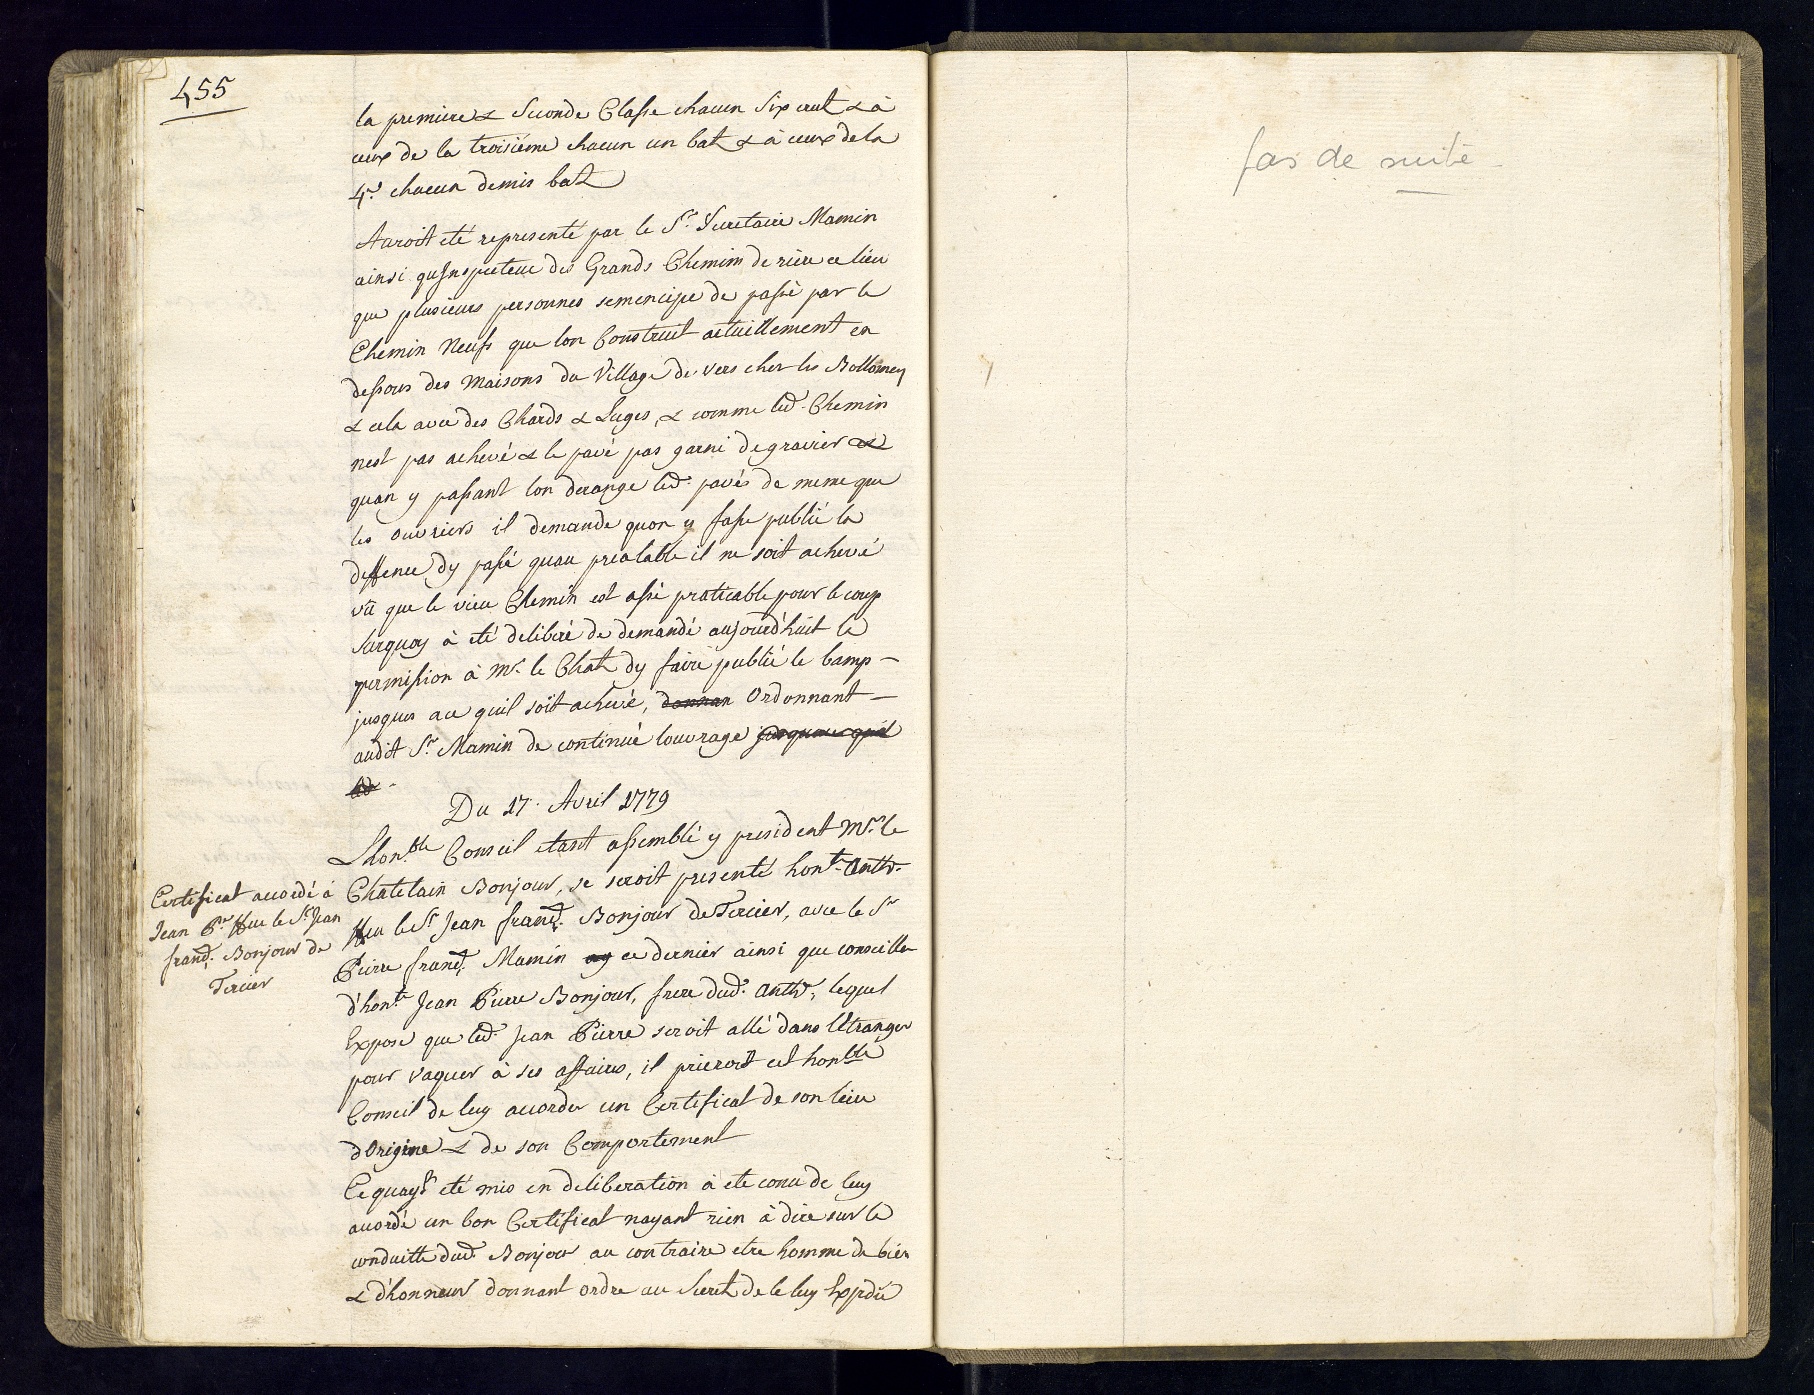 455
la premiere & Seconde Classe chacun Six crut & à
ceux de la troisiéme chacun un batz & à ceux de la
4.e chacun demis batz
Auroit eté representé par le Sr. Secretaire Mamin
ainsi qu'Inspecteur des Grands Chemins de riere ce lieu
que plusieurs personnes semencipe de passé par le
Chemin Neufs que lon Construit actuellement en
dessous des maisons du Village de vers cher les Bollomey
& cela avec des Chards & Luges, & comme led. Chemin
nest pas achevé & le pavé pas garni de gravier &
quan y passant lon derange led. pavés de meme que
les ouvriers il demande quon y fasse publié la
deffence dy passé quau prealable il ne soit achevé
vû que le vieu Chemin est assé praticable pour le coup
Surquoy à eté deliberé de demandé aujourd'huit la
permission à Mr. le Chat. dy faire publié le bamp –
jusques au quil soit achevé, donnan Ordonnant –
audit Sr. Mamin de continué louvrage jusques quil
ad –
Du 17. Avril 1779
Lhon.ble Conseil etant assemblé y president Mr. le
Chatelain Bonjour, se seroit presenté hon.t Anth.e
ffeu le Sr. Jean franç. Bonjour de Tercier, avec le Sr
Pierre franç. Mamin ce dernier ainsi que conseiller
d'hon.te Jean Pierre Bonjour, frere dud. Anth.e, lequel
Expose que led. Jean Pierre seroit allé dans l'Etranger
pour vaquer à ses affaires, il prieroit cet hon.ble
Conseil de luy accorder un Certificat de son leiu
dOrigine & de son Comportement
Ce quayt eté mis en deliberation à ete conu de luy
accordé un bon Certificat nayant rien à dire sur la
conduitte dud. Bonjour au contraire etre homme de bien
& d'honneur donnant ordre au Secret. de le luy Expdié
Certificat accordé à
Jean P.re ffeu le Sr. Jean
franç. Bonjour de
Tercier
pas de suite